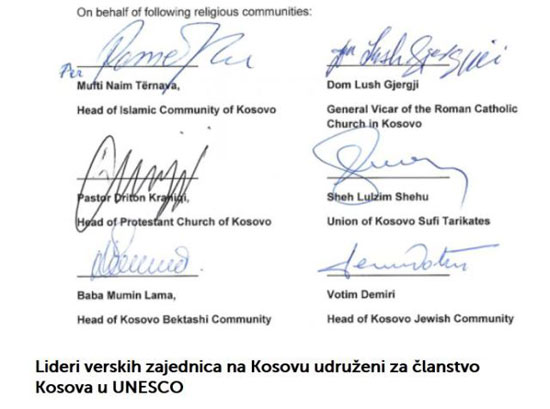 On behalf of following religious communities:
Per
Mufti Naim Tërnava,
Head of Islamic Community of Kosovo
Dom Lush Gjergji
General Vicar of the Roman Catholic
Church in Kosovo
Pastor Driton Krasniqi,
Head of Protestant Church of Kosovo
Sheh Lulzim Shehu
Union of Kosovo Sufi Tarikates
Baba Mumin Lama,
Head of Kosovo Bektashi Community
Votim Demiri
Head of Kosovo Jewish Community
Lideri verskih zajednica na Kosovu udruženi za članstvo
Kosova u UNESCO